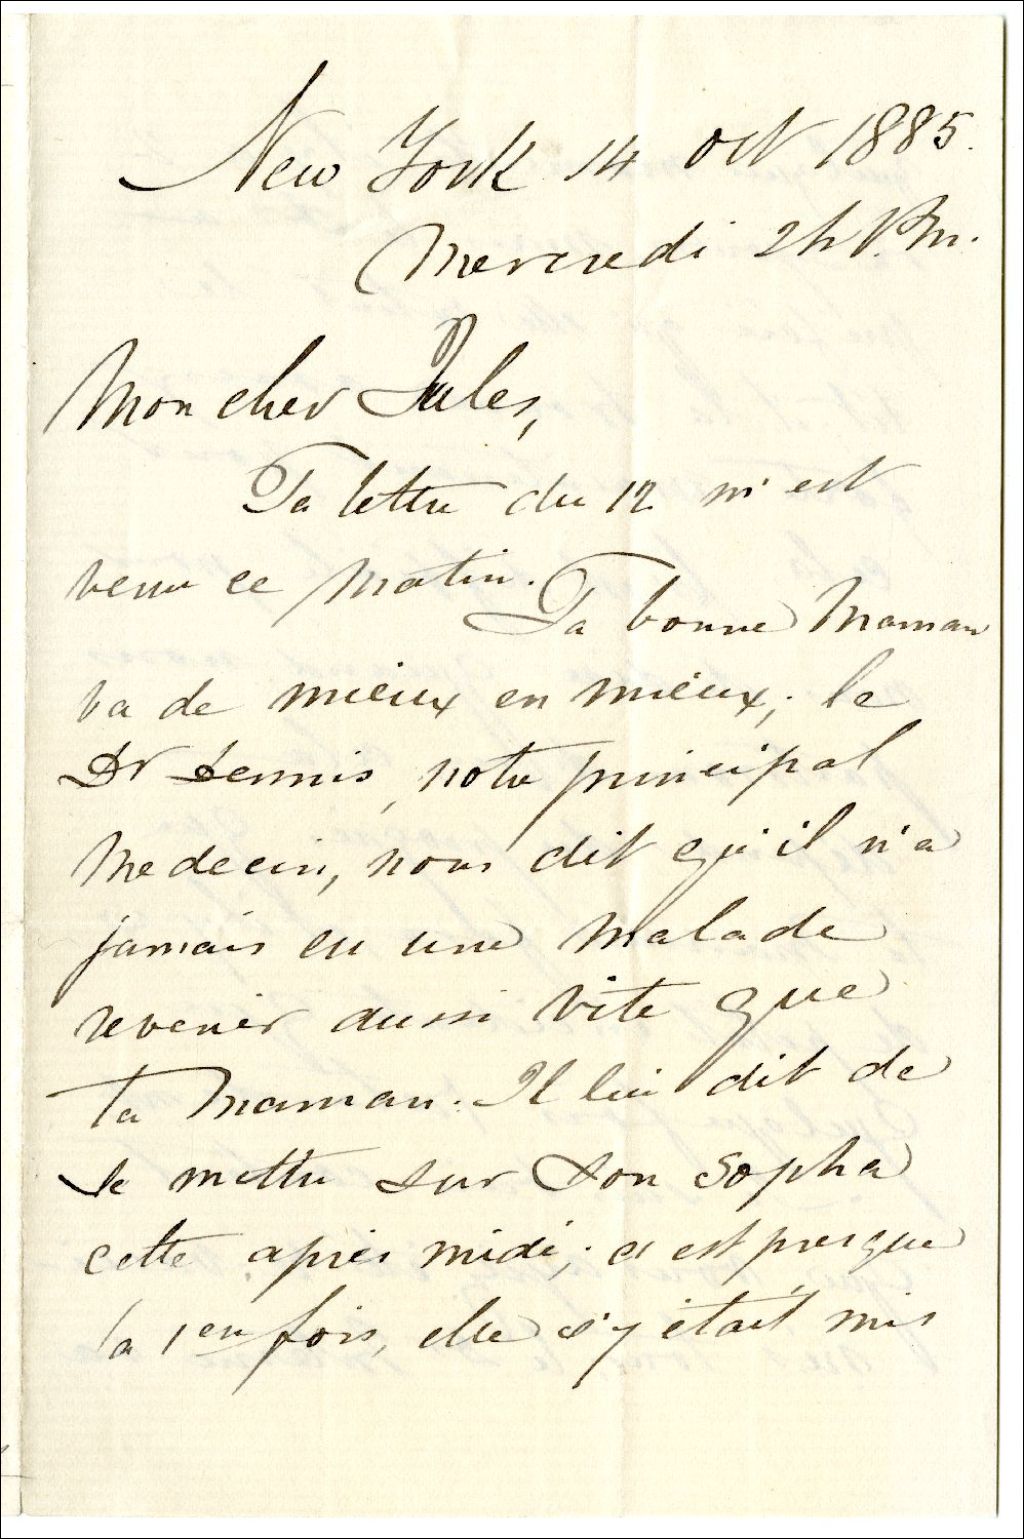 New York 14 oct 1885.
Mercredi 2h P.M.
Mon cher Jules,
Ta lettre du 12 m'est
venu ce matin. Ta bonne Maman
va de mieux en mieux; le
Dr Dennis, notre principal
Medecin, nous dit qu'il n'a
jamais eu une malade
revenir aussi vite que
ta Maman. Il lui dit de
se mettre sur son sopha
cette après midi; c'est presque
la 1ere fois, elle s'y était mis